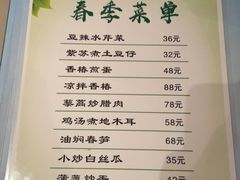 春季菜单
豆辣水芹菜 36元
紫苏煮土豆仔 32元
香椿煎蛋 48元
凉拌香椿 88元
藜蒿炒腊肉 78元
鸡汤煮地木耳 58元
油焖春笋 68元
小炒白丝瓜 35元
炒蛋 42元